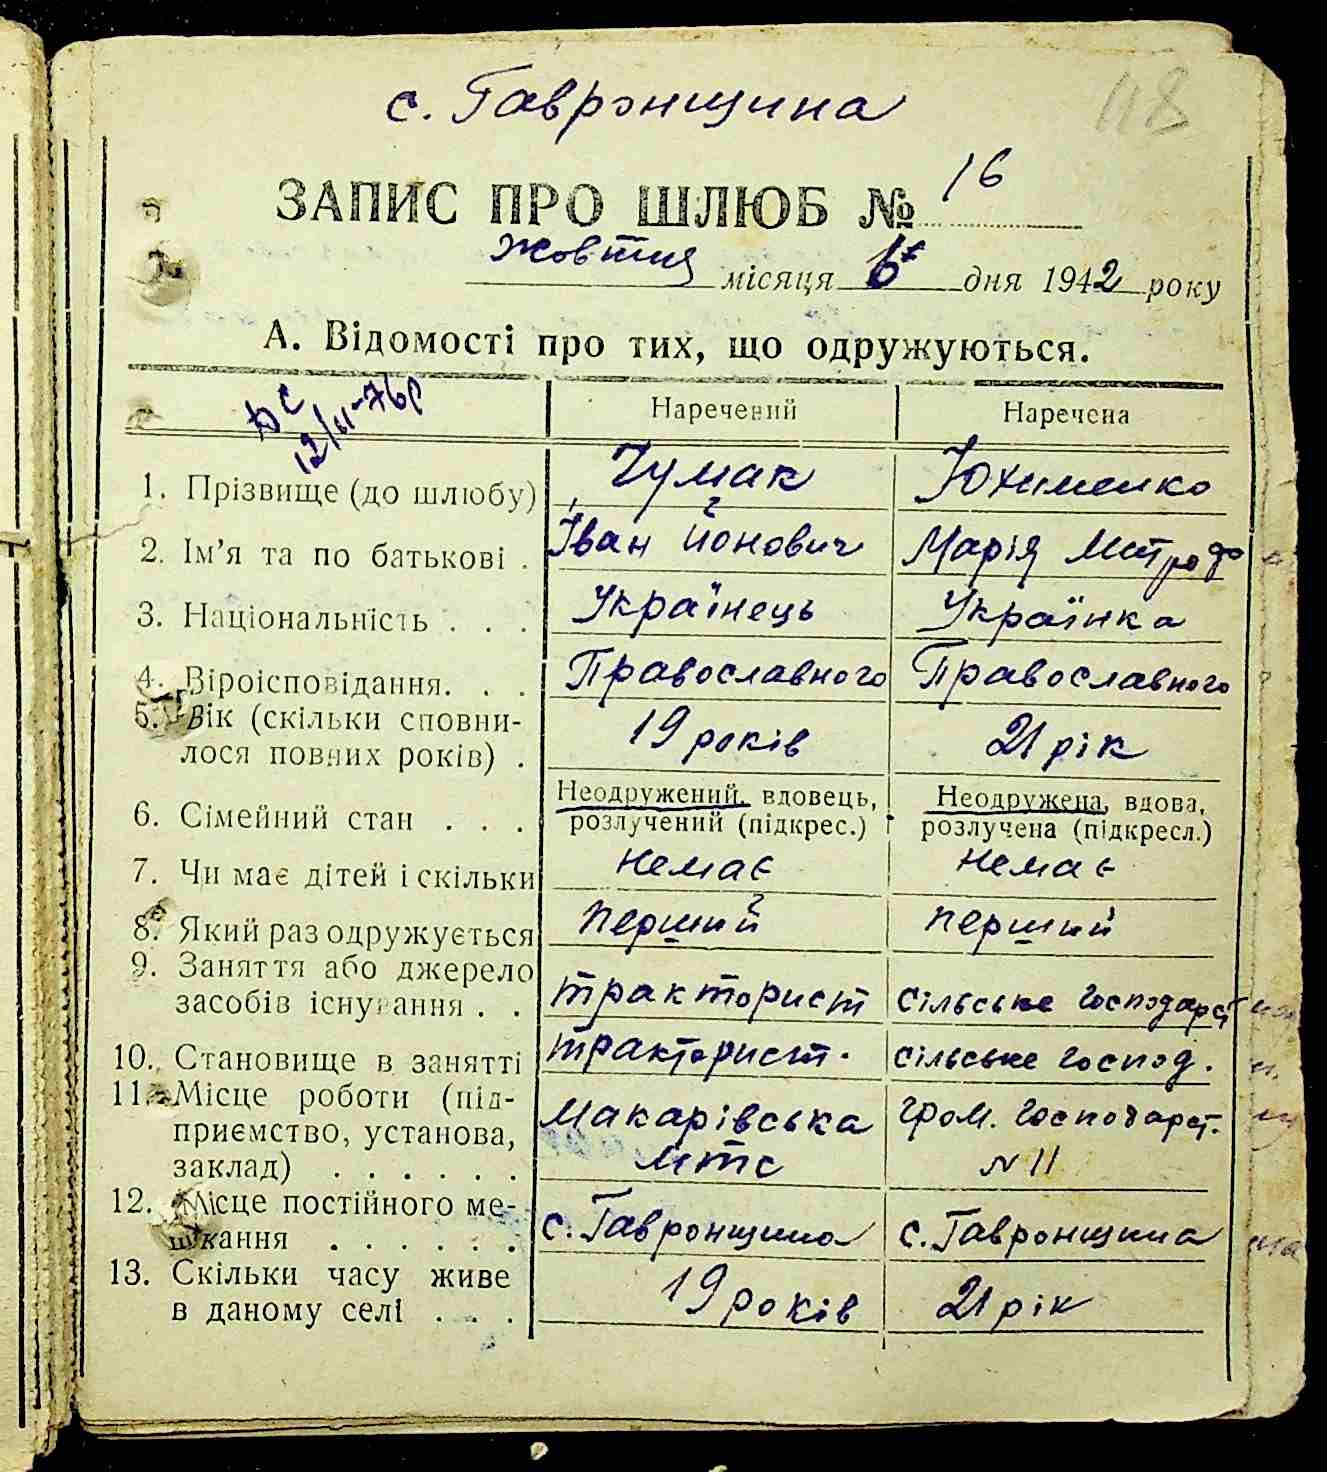 с. Гавронщина
48
ЗАПИС ПРО ШЛЮБ № 16
жовтня місяця 6 дня 1942 року
А. Відомості про тих, що одружуються.
12/II-76р
Наречений Наречена
1. Прізвище (до шлюбу) Чумак Юхименко
2. Ім'я та по батькові . Іван Йонович Марія Митродо
3. Національність . . . Українець Українка
4. Віроісповідання. . . Православного Православного
5. Вік (скільки сповни-
лося повних років) . 19 років 21 рік
6. Сімейний стан . . . Неодружений, вдовець, розлучений (підкрес.) Неодружена, вдова, розлучена (підкресл.)
7. Чи має дітей і скільки немає немає
8. Який раз одружується перший перший
9. Заняття або джерело
засобів існування . . тракторист сільське господарст
10. Становище в занятті тракторист. сільське господ.
11. Місце роботи (під-
приємство, установа, Макарівська гром. господарст.
заклад) . . . . . . МТС № 11
12. Місце постійного ме-
шкання . . . . . . с. Гавронщина с. Гавронщина
13. Скільки часу живе
в даному селі . . . 19 років 21 рік